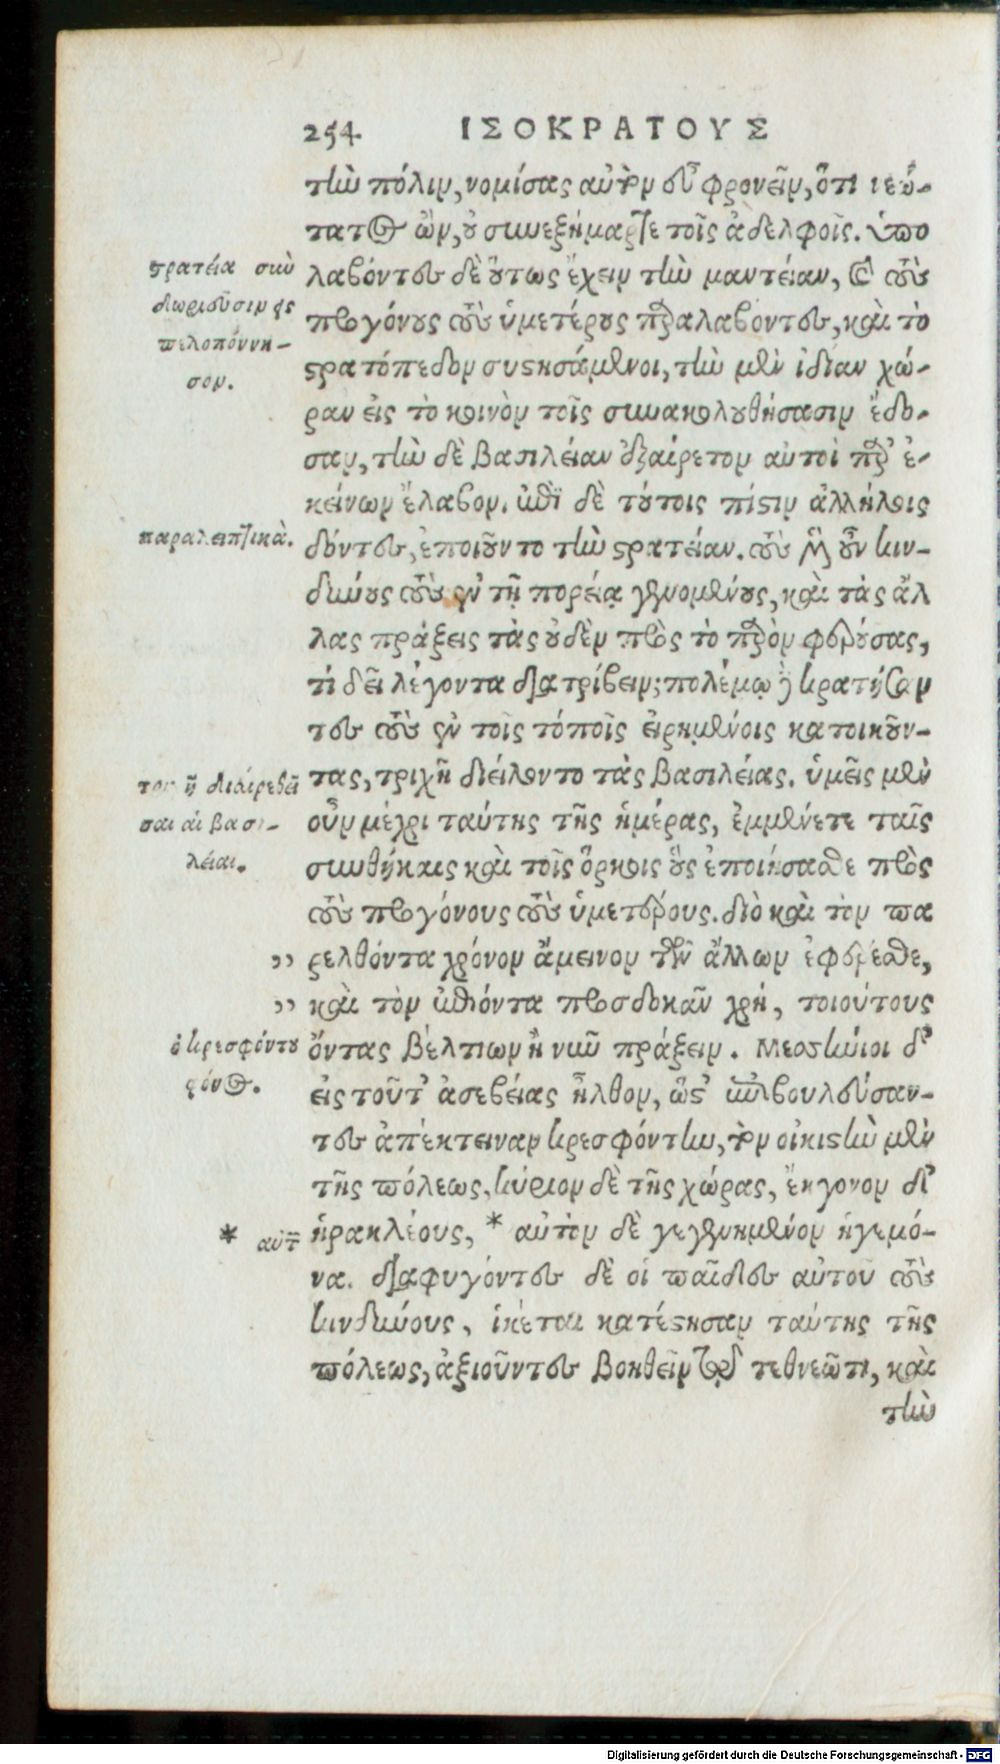 254 ΙΣΟΚΡΑΤΟΥΣ
τὴν πόλιν, νομίσας αὐτὸν εὖ φρονεῖν, ὅτι νεώ-
τατος ὢν, οὐ συνεξήμαρτε τοῖς ἀδελφοῖς. ὑπο
λαβόντες δὲ οὕτως ἔχειν τὴν μαντείαν, καὶ τοὺς
προγόνους τοὺς ὑμετέρους παραλαβόντες, καὶ τὸ
στρατόπεδον συστησάμενοι, τὴν μὲν ἰδίαν χώ-
ραν εἰς τὸ κοινὸν τοῖς συνακολουθήσασιν ἔδο-
σαν, τὴν δὲ βασιλείαν ἐξαίρετον αὐτοὶ παρ' ἐ-
κείνων ἔλαβον. ἐπὶ δὲ τούτοις πίστιν ἀλλήλοις
δόντες, ἐποιοῦντο τὴν στρατείαν. τοὺς μὲν οὖν κιν-
δύνους τοὺς ἐν τῇ πορείᾳ γενομένους, καὶ τὰς ἄλ
λας πράξεις τὰς οὐδὲν πρὸς τὸ παρὸν φερούσας,
τί δεῖ λέγοντα διατρίβειν; πολέμῳ δὲ κρατήσαν
τες τοὺς ἐν τοῖς τόποις εἰρημένοις κατοικοῦν-
τας, τριχῆ διείλοντο τὰς βασιλείας. ὑμεῖς μὲν
οὖν μέχρι ταύτης τῆς ἡμέρας, ἐμμένετε ταῖς
συνθήκαις καὶ τοῖς ὅρκοις οὓς ἐποιήσασθε πρὸς
τοὺς προγόνους τοὺς ὑμετέρους. διὸ καὶ τὸν πα
ρελθόντα χρόνον ἄμεινον τῶν ἄλλων ἐφέρεσθε,
καὶ τὸν ἐπιόντα προσδοκᾶν χρή, τοιούτους
ὄντας βέλτιον ἢ νῦν πράξειν. Μεσσήνιοι δ'
εἰς τοῦτ' ἀσεβείας ἦλθον, ὥστ' ἐπιβουλεύσαν-
τες ἀπέκτειναν κρεσφόντην, τὸν οἰκιστὴν μὲν
τῆς πόλεως, κύριον δὲ τῆς χώρας, ἔκγονον δ'
ἡρακλέους, * αὐτὸν δὲ γεγενημένον ἡγεμό-
να. διαφυγόντες δὲ οἱ παῖδες αὐτοῦ τοὺς
κινδύνους, ἱκέται κατέστησαν ταύτης τῆς
πόλεως, ἀξιοῦντες βοηθεῖν τῷ τεθνεῶτι, καὶ
τὴν
στρατεία σὺν
δωριεῦσιν εἰς
πελοπόννη-
σον.
παραλειπτικά.
διῄρεθη
σαι αἱ βασι-
λείαι.
ὁ κρεσφόντου
φόνος.
* αὐτ
Digitalisierung gefördert durch die Deutsche Forschungsgemeinschaft - DFG